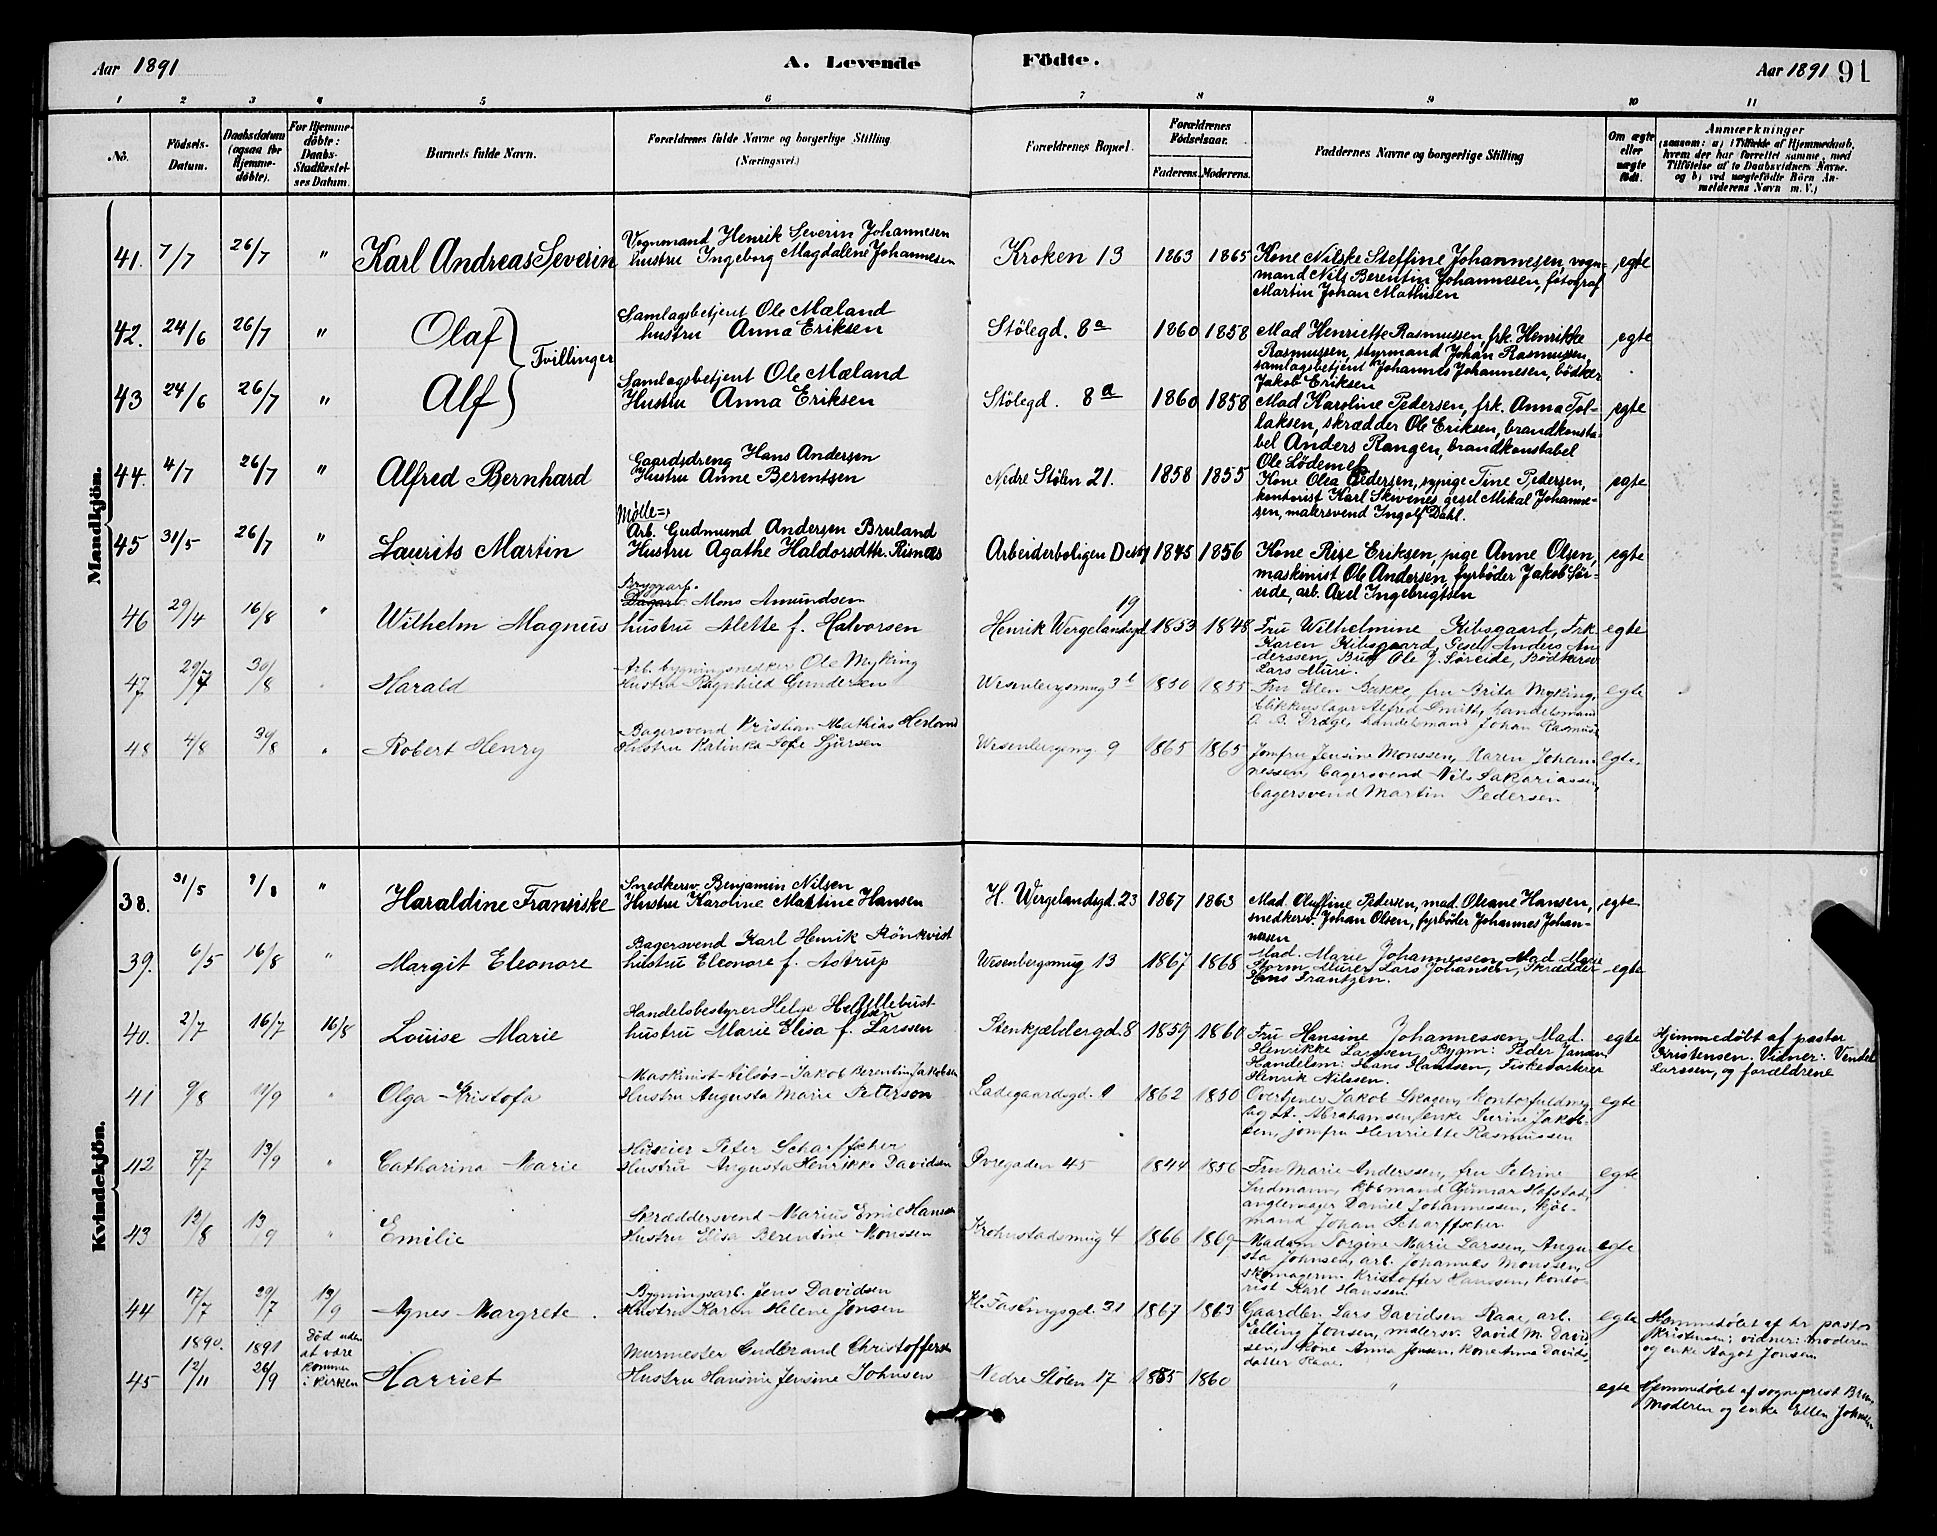 Aar 1891
A. Levende Födte.
Aar 1891 91
1 2 3 4 5 6 7 8 9 10 11
No.
Födsels-Datum.
Daabsdatum (ogsaa for Hjemme-döbte).
For Hjemme-döbte: Daabs-Stadfæstel-ses Datum.
Barnets fulde Navn.
Forældrenes fulde Navne og borgerlige Stilling (Næringsvei.)
Forældrenes Bopæl.
Forældrenes Födselsaar.
Faderens. Moderens.
Faddernes Navne og borgerlige Stilling
Om ægte eller uægte födt.
Anmærkninger
(saasom: a) i Tilfælde af Hjemmedaab, hvem der har forrettet samme, med Tilföielse af to Daabsvidners Navne, og b) ved uægtefödte Börn An-melderens Navn m. V.)
Mandkjön.
41. 7/7 26/7 " Karl Andreas Severin
Vognmand Henrik Severin Johannesen
hustru Ingeborg Magdalene Johannesen
Kroken 13 1863 1865
Kone Nilske Steffine Johannesen, vogn-
mand Nils Berentin Johannesen, fotograf
Martin Johan Mathisen
egte
42. 24/6 26/7 " Olaf } Tvillinger
Samlagsbetjent Ole Mæland
hustru Anna Eriksen
Stölegd. 8a 1860 1858
Mad Henriette Rasmussen, frk. Henrikke
Rasmussen, styrmand Johan Rasmussen,
samlagsbetjent Johannes Johannesen, bödker
Jakob Eriksen
egte
43 24/6 26/7 " Alf
Samlagsbetjent Ole Mæland
Hustru Anna Eriksen
Stölegd. 8a 1860 1858
Mad Karoline Pedersen, frk. Anna Tol-
laksen, skrædder Ole Eriksen, brandkonsta-
bel Anders Rongen, brandkonstabel
Ole Lödemel
egte
44. 4/7 26/7 " Alfred Bernhard
Gaardsdreng Hans Andersen
Hustru Anne Berentsen
Nedre Stölen 21. 1858 1855
Kone Olea Pedersen, sypige Tine Pedersen,
kontorist Karl Skivenes, gesel Mikal Johanne-
sen, malersvend Ingolf Dahl.
egte
45 31/5 26/7 " Laurits Martin
Mölle=
Arb. Gudmund Andersen Bruland
Hustru Agathe Haldorsdtr. Risnæs
Arbeiderboligen D 1845 1856
Kone Rise Eriksen, pige Anne Olsen,
maskinist Ole Andersen, fyrböder Jakob Sör-
eide, arb. Axel Ingebrigtsen
egte
46 29/4 16/8 " Wilhelm Magnus
Bryggarb.
Mons Amundsen
hustru Alette f. Halvorsen
Henrik Wergelandsgd 19 1853 1848
Fru Wilhelmine Kibsgaard, Frk
Karen Kibsgaard, Gesel Anders An-
derssen, Bud Ole J. Söreide, Bödkersv
Lars Muri.
egte
47 29/7 30/8 " Harald
Arb. bygningsnedker Ole Myking
Hustru Ragnhild Gundersen
Wesenbergsmug 3b 1850 1855
Fru Elen Bakke, fru Brita Myking,
blikkenslager Alfred Smitt, handelsmand
O. B. Dræge, handelsmand Johan Rasmus
egte
48 4/8 30/8 " Robert Henry
Bagersvend Kristian Mathias Herland
Hustru Kalinka Sofie Sjursen
Wesenbergsmg. 9 1865 1865
Jomfru Jensine Monssen, Maren Johan-
nessen, bagersvend Nils Sakariassen,
bagersvend Martin Pedersen
egte
Kvindekjön.
38. 31/5 9/8 " Haraldine Fransiske
Snedkersv. Benjamin Nilsen
Hustru Karoline Martine Hansen
H. Wergelandsgd. 23 1867 1863
Mad. Oluffine Pedersen, mad. Oleane Hansen,
snedkersv. Johan Olsen, fyrböder Johannes Johan-
nessen
egte
39. 6/5 16/8 " Margit Eleonore
Bagersvend Karl Henrik Rönkvist
hustru Eleonore f. Astrup
Wesenbergsmug 13 1867 1868
Mad. Marie Johannessen, Mad Marie
Storm, Murer Lars Johansen, Skrædder
Hans Frantzen.
egte
40. 2/7 16/7 16/8 Louise Marie
Handelsbestyrer Helge Helgesen Ullebust
hustru Marie Elisa f. Larssen
Stenkjældergd. 8 1859 1860
Fru Hansine Johannessen, Mad.
Henrikke Larssen, Bygm: Peder Jansen
Handelsm: Hans Hantsen, Fiskesorterer
Henrik Nilssen.
egte
Hjemmedöbt af pastor
Kristensen. Vidner: Vendel
Larssen, og forældrene
41 9/8 11/9 " Olga Kristofa
Maskinist tilsös Jakob Berentin Jakobsen
Hustru Augusta Marie Peterson
Ladegaardsgd. 9 1862 1850
Overtjener Jakob Skagen, kontorfuldmeg-
tig A. Abrahamsen, enke Purine Jakob-
sen, jomfru Henriette Rasmussen
egte
42 7/7 13/9 " Catharina Marie
Huseier Peter Scharffscher
Hustru Augusta Henrikke Davidsen
Övregaden 45 1844 1856
Fru Marie Anderssen, fru Petrine
Sudmann, kjöbmand Gunnar Hofstad,
anglemager Daniel Johannessen, kjöb-
mand Johan Scharffscher
egte
43 12/8 13/9 " Emilie
Skræddersvend Marius Emil Hansen
Hustru Elisa Berentine Monssen
Krohnstadsmug 4 1866 1869
Madam Torgine Marie Larssen, Augu-
sta Johnsen, arb. Johannes Monssen,
skomagerm. Kristoffer Hanssen, konto-
rist Karl Hanssen
egte
44 17/7 29/7 13/9 Agnes Margrete.
Bygningsarb. Jens Davidsen
Hustru Karen Helene Jonsen
Kl. Fastingsgd. 31 1867 1863
Gaardbr. Lars Davidsen Raae, arb.
Elling Jonsen, malersv. David M. David-
sen, kone Anna Jonsen, kone Anna Davids-
datter Raae.
egte
Hjemmedöbt af hr pastor
Kristensen; vidner: moderen
og enke Aagot Jonsen
45 1890. 12/11 1891 26/9 Död uden at være kommen i kirken Harriet
Murmester Gudbrand Christoffersen
Hustru Hansine Jensine Johnsen
Nedre Stölen 17 1855 1860
"
egte
Hjemmedöbt af sogneprest Brun
Moderen og enke Ellen Johnsen